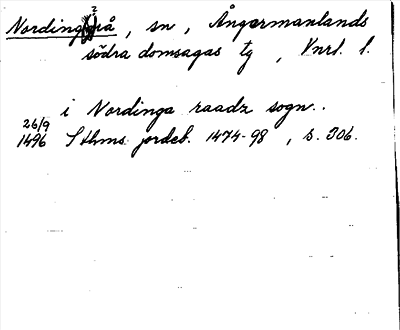 Nordingrå, sn, Ångermanlands
södra domsagas tg, Vnrl. l.
i Nordinga raadz sogn..
26/9
1496 Sthms jordeb. 1474-98, s. 306.